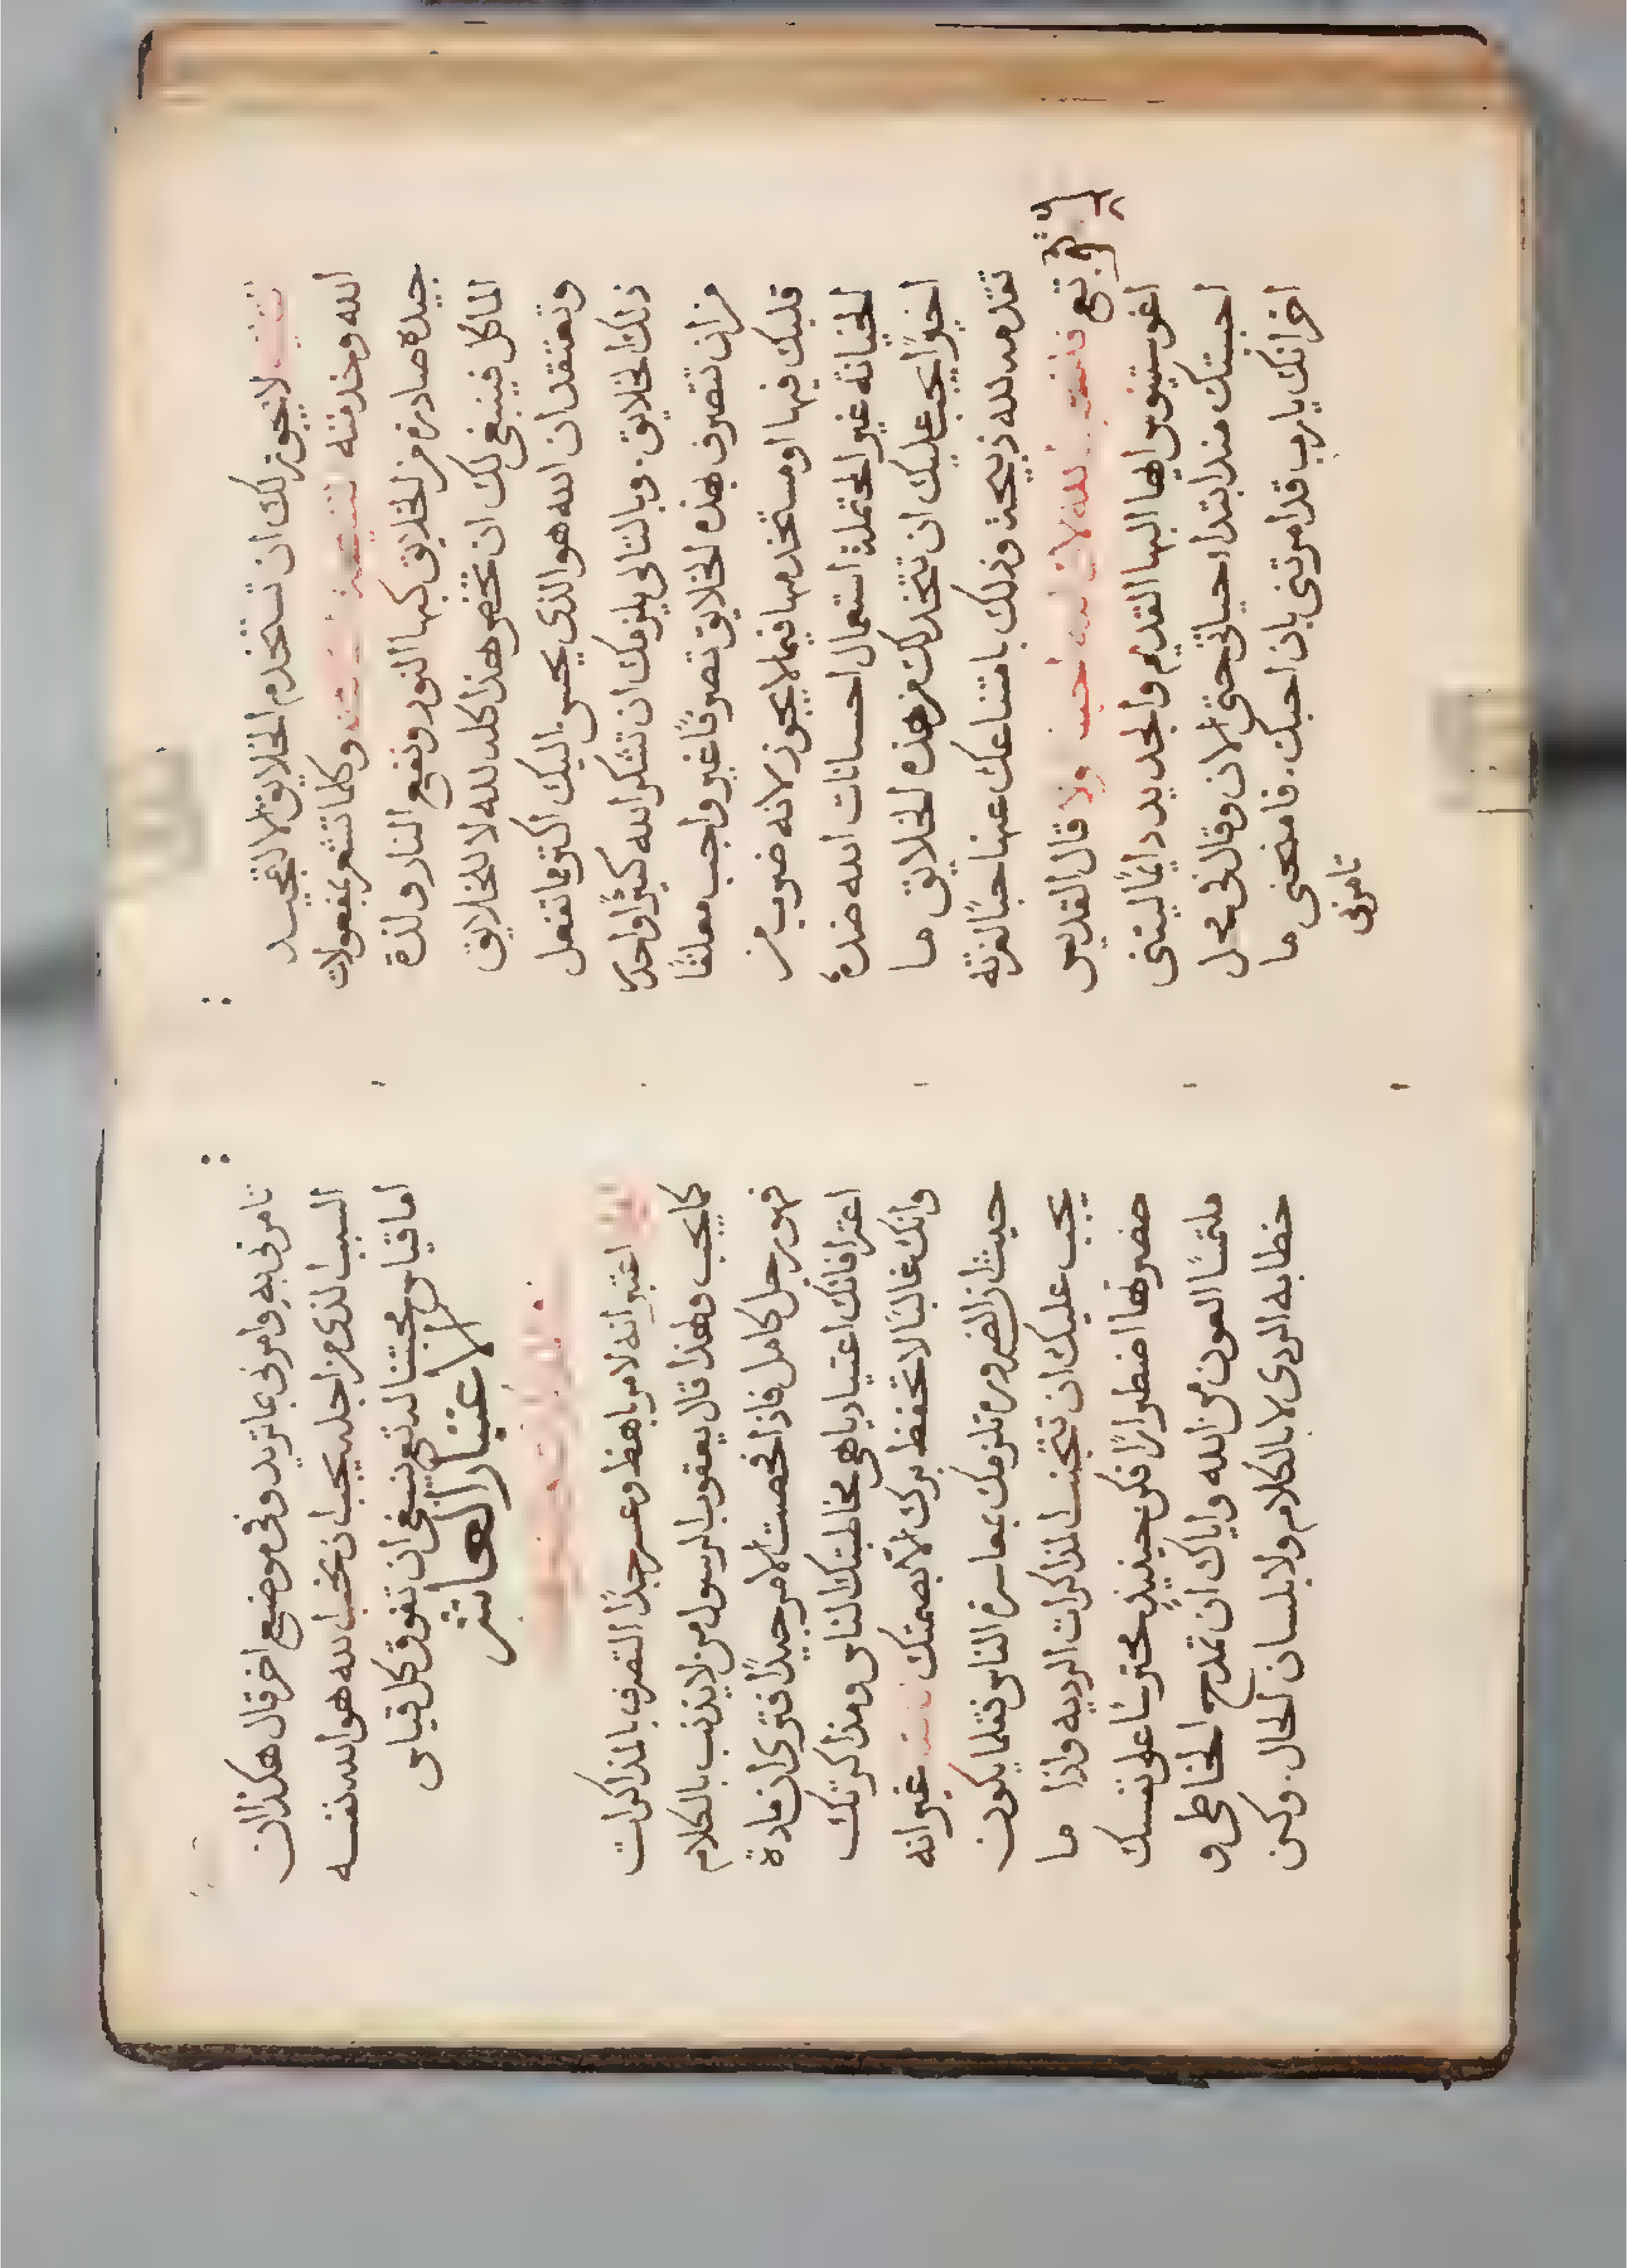 لا يجوز لك ان تستخدم الخلايق الا لتمجيد
الله وخدمته وكلما تشعر بمفعولات
جيده صادره من الخلايق كبها النور ونفع النار ولذة
الماكل فينبغي لك ان تحضر هذا كله لله لا للخلايق
وتعتقد ان الله هو الذي يحسن اليك اكثر مما تفعل
ذلك الخلايق. وبالتالي يلزمك ان تشكر الله كثيرًا واحدة
من ان تتصرف بهذه الخلايق تصرفًا غير واجب معلقًا
قلبك فيها او مستخدمها فيما لا يجوز لانه ضرب من
الخيانة غير المحتملة استعمال احسانات الله ضده
اخيرًا يجب عليك ان تتخذ لك من هذه الخلايق ما
تقدمه لله ذبيحة وذلك بامتناعك عنها حبًا لعزته
تع ولا قال القديس
اغوستينوس ايها البها القديم والجديد دايمًا ليتني
احببتك منذ ابتداء حياتي حتى الان وقال في محل
اخر انك يارب قد امرتني بان احبك. فامنحني ما
تامرني
تامرني به وامرني بما تريد وفي موضع اخر قال هكذا ان
السبب الذي من اجله يجب ان نحب الله هو الله نفسه
اما قياس محبتنا له تع فينبغي ان تفوق كل قياس
الاعتبار العاشر
اعتبر انه لامر باهظ وعسر جدًا التصرف بالمذاكرات
كما يجب ولهذا قال يعقوب الرسول من لا يذنب بالكلام
فهو رجل كامل فاذا فحصت الامر جيدًا فترى ان مادة
اعترافاتك اعتياديا هي مخاطبتك الناس ومذاكرتك
وانك غالبًا لا تحفظ برك الا بصمتك غير انه
حيث ان الضروره تلزمك بمعاشرة الناس فقلما يكون
يجب عليك ان تتجنب المذاكرات الرديه واذا ما
حضرتها اضطرارًا فكن حينيذٍ محترسًا على نفسك
ملتمسًا العون من الله واياك ان تمدح الخاطي و
خطابه الردي لا بالكلام ولا بلسان الحال. وكن